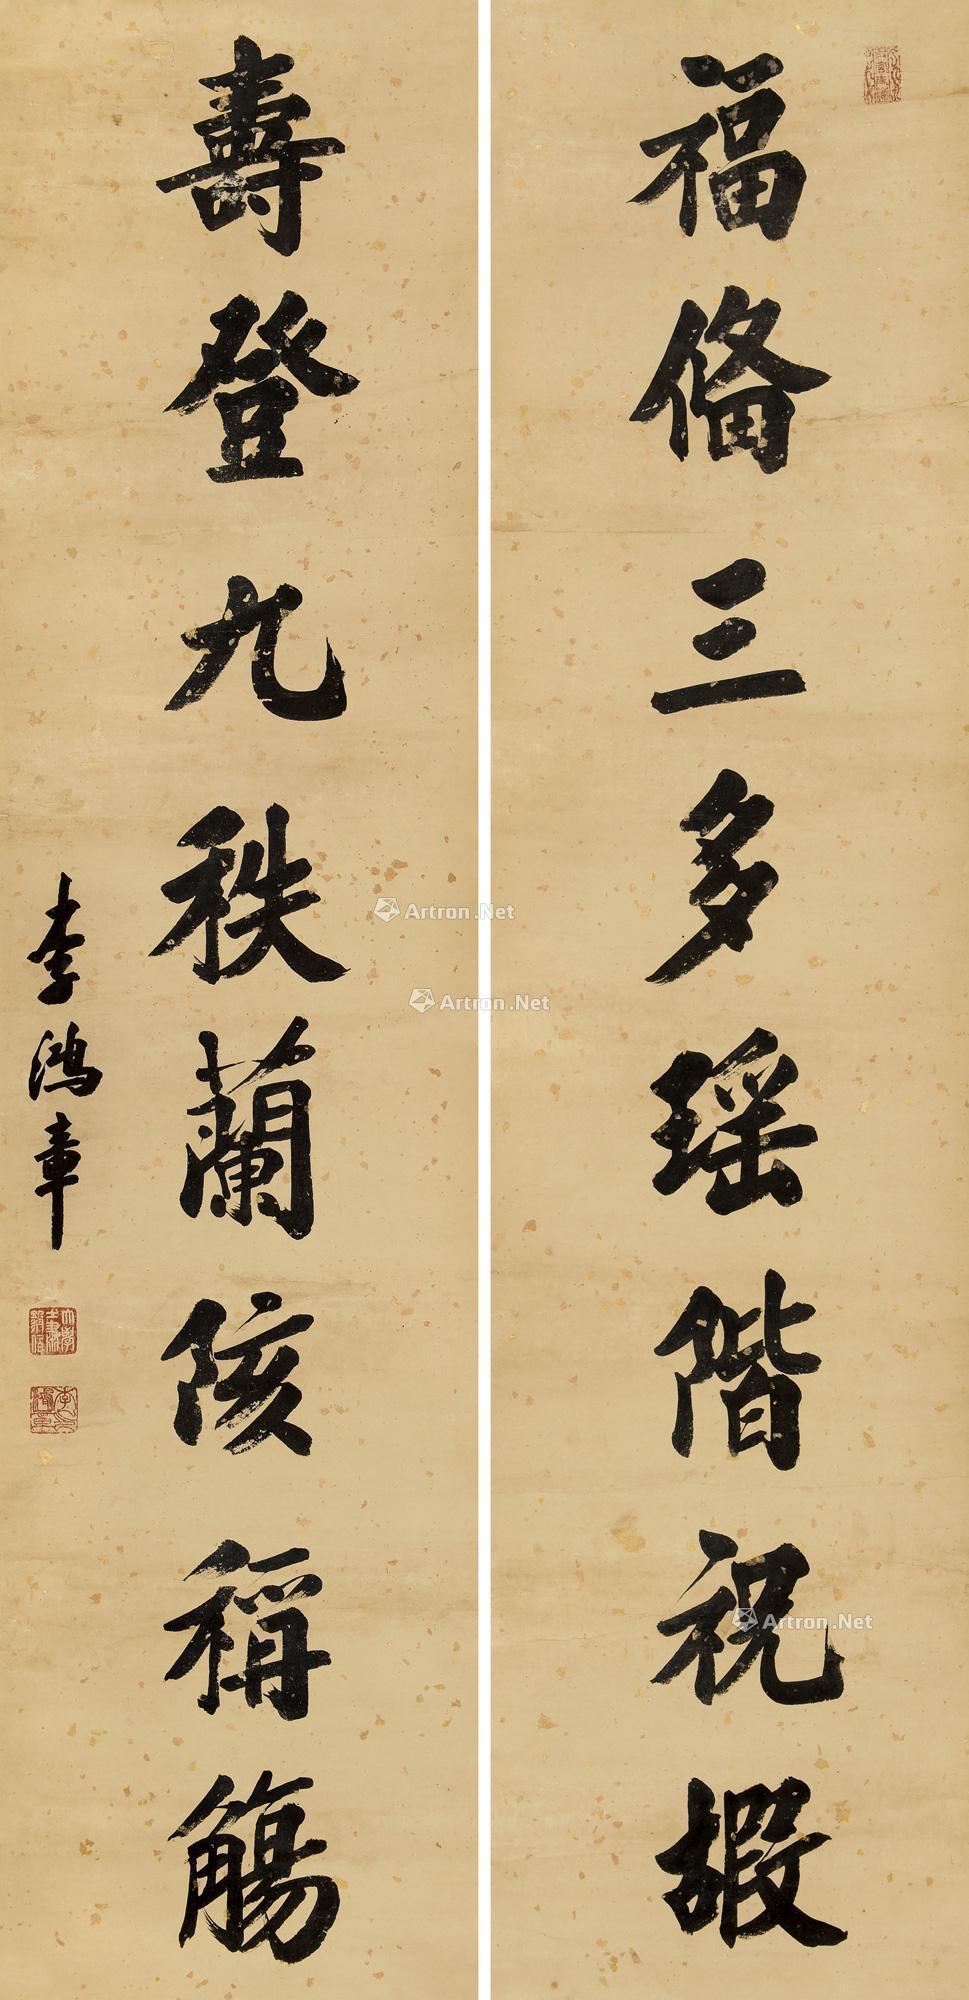 福備三多瑶階祝嘏
壽登九秩蘭陔稱觴
李鴻章
Artron.Net
Artron.Net
Artron.Net